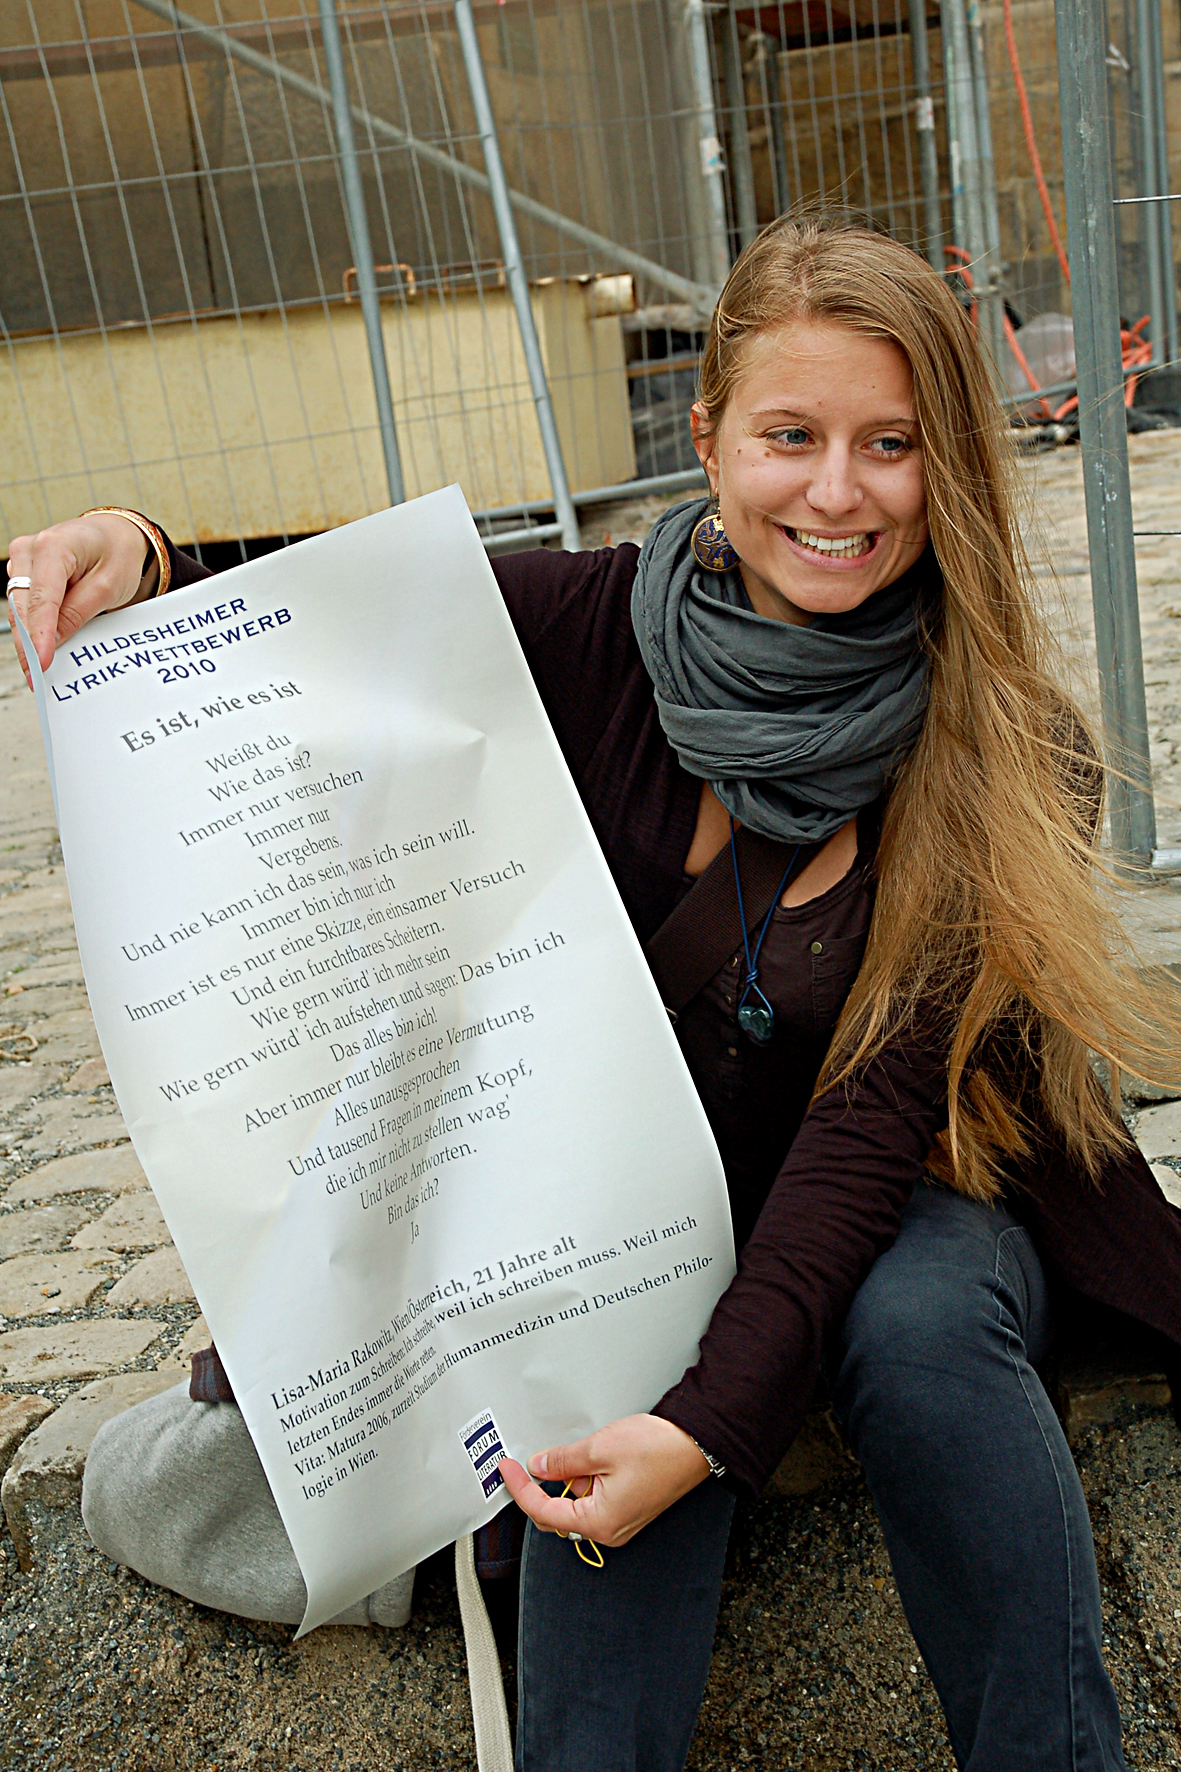 HILDESHEIMER
LYRIK-WETTBEWERB
2010
Es ist, wie es ist
Weißt du
Wie das ist?
Immer nur versuchen
Immer nur
Vergebens.
Und nie kann ich das sein, was ich sein will.
Immer bin ich nur ich
Immer ist es nur eine Skizze, ein einsamer Versuch
Und ein furchtbares Scheitern.
Wie gern würd' ich mehr sein
Wie gern würd' ich aufstehen und sagen: Das bin ich
Das alles bin ich!
Aber immer nur bleibt es eine Vermutung
Alles unausgesprochen
Und tausend Fragen in meinem Kopf,
die ich mir nicht zu stellen wag'
Und keine Antworten.
Bin das ich?
Ja
Lisa-Maria Rakowitz, Wien/Österreich, 21 Jahre alt
Motivation zum Schreiben: Ich schreibe, weil ich schreiben muss. Weil mich
letzten Endes immer die Worte retten.
Vita: Matura 2006, zurzeit Studium der Humanmedizin und Deutschen Philo-
logie in Wien.
Förderverein
FORUM
LITERATUR